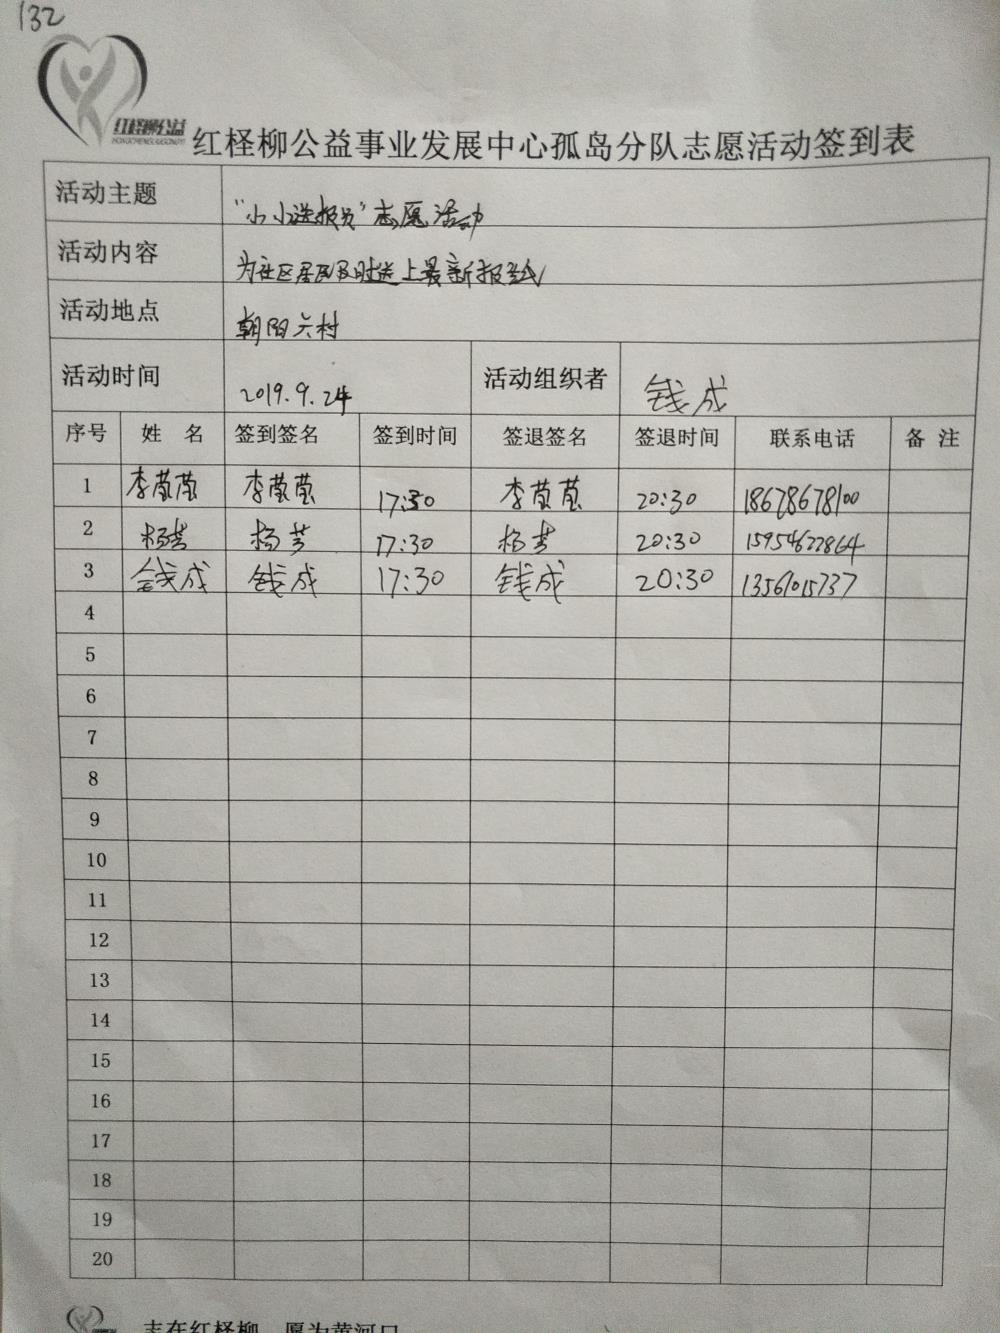 132
红柽柳公益
红柽柳公益事业发展中心孤岛分队志愿活动签到表
活动主题 “小小送报员”志愿活动
活动内容 为社区居民及时送上最新报纸
活动地点 朝阳六村
活动时间 2019.9.24 活动组织者 钱成
序号 姓 名 签到签名 签到时间 签退签名 签退时间 联系电话 备 注
1 李莹莹 李莹莹 17:30 李莹莹 20:30 18678678100
2 杨芳 杨芳 17:30 杨芳 20:30 15954622864
3 钱成 钱成 17:30 钱成 20:30 13561015737
4
5
6
7
8
9
10
11
12
13
14
15
16
17
18
19
20
志在红柽柳 愿为黄河口